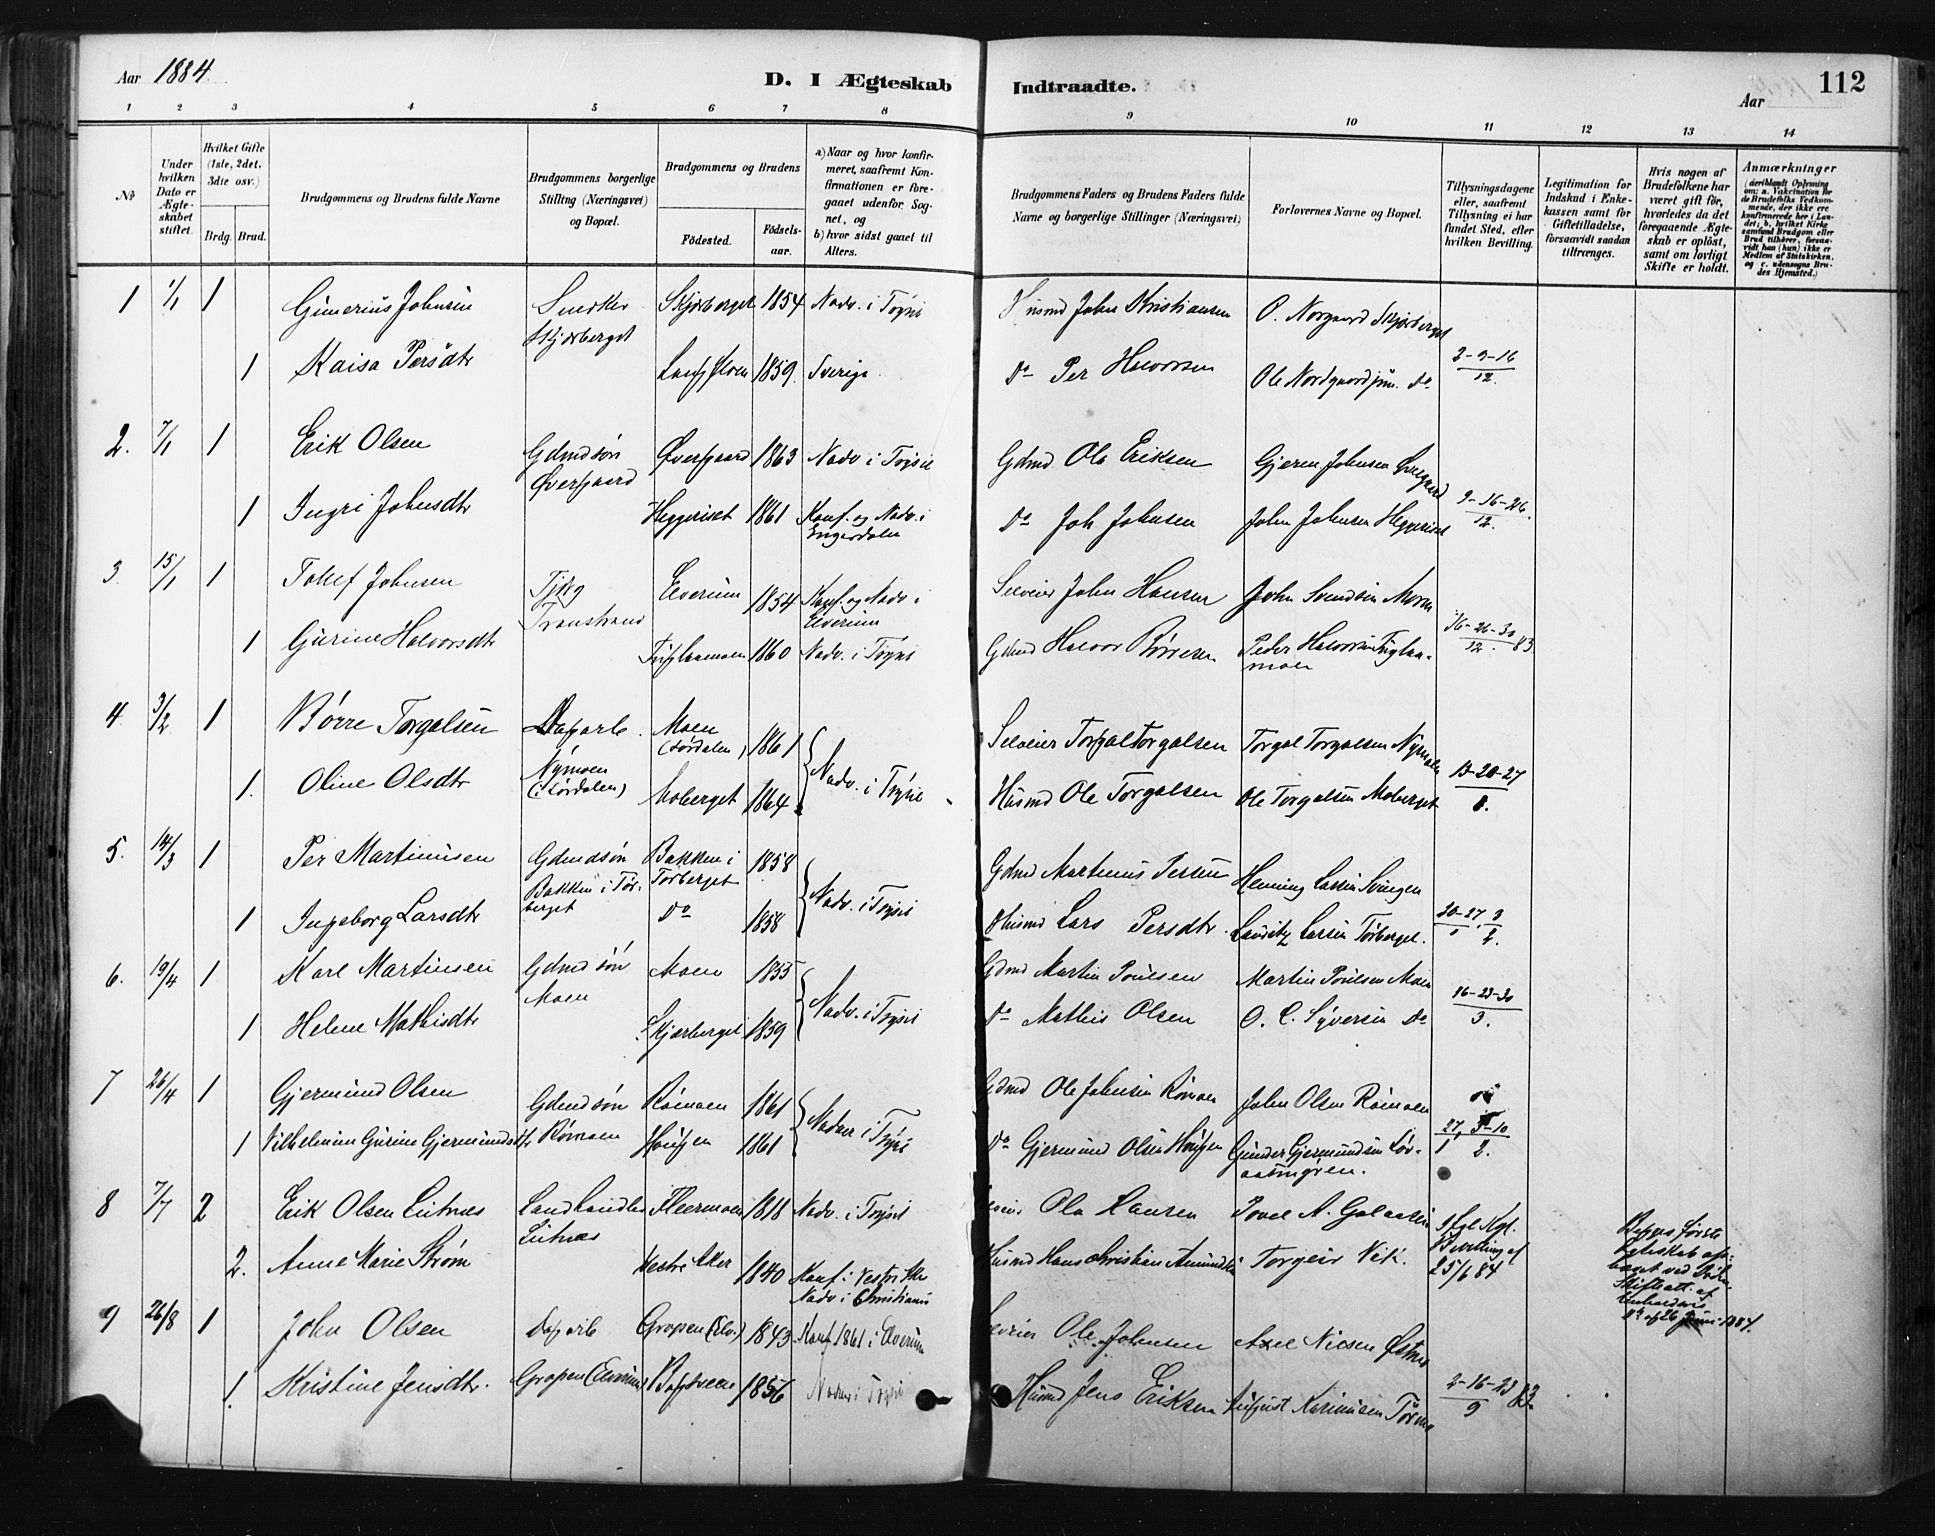 Aar 1884
D. I Ægteskab Indtraadte.
Aar
112
1 2 3 4 5 6 7 8 9 10 11 12 13 14
No
Under hvilken Dato er Ægteskabet stiftet.
Hvilket Gifte (1ste, 2det, 3die osv.)
Brdg. Brud.
Brudgommens og Brudens fulde Navne
Brudgommens borgerlige Stilling (Næringsvei) og Bopæl.
Brudgommens og Brudens
Fødested.
Fødselsaar.
a) Naar og hvor konfirmeret, saafremt Konfirmationen er foregaaet udenfor Sognet, og
b) hvor sidst gaaet til Alters.
Brudgommens Faders og Brudens Faders fulde Navne og borgerlige Stillinger (Næringsvei)
Forlovernes Navne og Bopæl.
Tillysningsdagene eller, saafremt Tillysning ei har fundet Sted, efter hvilken Bevilling.
Legitimation for Indskud i Enkekassen samt for Giftetilladelse, forsaavidt saadan tiltrænges.
Hvis nogen af Brudefolkene har været gift før, hvorledes da det foregaaende Ægteskab er opløst, samt om lovligt Skifte er holdt.
Anmærkninger
(deriblandt Oplysning om: a. Vakcination for de Brudefolks Vedkommende, der ikke ere konfirmerede her i Landet; b. hvilket Kirkesamfund Brudgom eller Brud tilhører, forsaavidt han (hun) ikke er Medlem af Statskirken, og c. udensogns Brudes Hjemsted.)
1 1/1 1 Gunerius Johnsen Snedker Skjærberget Skjærberget 1854 Nadv. i Trysil Husmd John Kristiansen O. Norgaard Skjærberget
1 Kaisa Persdtr 1859 Sverige Do Per Halvorsen Ole Nordgaard jun. do 2-9-16/12.
2. 7/1 1 Erik Olsen Gdmdsøn Øversgaard Øversgaard 1863 Nadv. i Trysil Gdmd Ole Eriksen Gjerm Johnsen
1 Ingri Johnsdtr Heggeriset 1861 Konf. og Nadv. i Engerdalen Do Joh Johnsen John Johnsen Heggeriset 9-16-26./12.
3. 15/1 1 Tollef Johnsen Transtrand Elverum 1854 Konf. og Nadv. i Elverum Selveier John Hansen John Svendsen Moren
1 Gurine Halvorsdtr 1860 Nadv. i Trysil Gdmd Halvor Børresen Peder Halvorsen 16-26-30/12. 83.
4. 3/2 1 Børre Torgalsen Dagarb. Nymoen (i Lørdalen) Moen (Lørdalen) 1861 Nadv. i Trysil Selveier Torgal Torgalsen Torgal Torgalsen Nymoen
1. Oline Olsdtr Moberget 1864 Husmd Ole Torgalsen Ole Torgalsen Moberget 13-20-27/1.
5. 14/3 1 Per Martinusen Gdmdsøn Bakken i Tørberget Bakken i Tørberget 1858 Nadv. i Trysil Gdmd Martinus Persen Henning Larsen Svingen
1 Ingeborg Larsdtr Do 1858 Husmd Lars Persdtr. Lauritz Larsen Tørberget. 20-27/1. 3/2.
6. 19/4 1 Karl Martinsen Gdmdsøn Moen Moen 1855 Nadv. i Trysil Gdmd Martin Poulsen Martin Poulsen Moen
1 Helene Mathisdtr Skjærberget 1859 Do Mathis Olsen O. C. Syversen Do 16-23-30/3.
7 26/4 1 Gjermund Olsen Gdmdsøn Rømoen Rømoen 1861 Nadv. i Trysil Gdmd Ole Johnsen Rømoen John Olsen Rømoen
1 Vilhelmine Gurine Gjermundsdtr 1861 Do Gjermund Olsen Gunder Gjermundsen 27/1, 3-10/2.
8 7/7 2 Erik Olsen Lutnæs Landhandler Lutnæs Flermoen 1818 Nadv. i Trysil Selveier Ole Hansen Povel A. Galaasen Ifgl Kgl. Bevilling af 25/6 84
2. Anne Marie Strøm Vestre Aker 1840 Konf. i Vestre Aker Nadv. i Christiania Husmd Hans Christian Amundsen Torgeir Vik.
Begges første
9 26/8 1 John Olsen Dagarb Gropen (Elverum) Gropen (Elv.) 1843 Konf 1861 i Elverum Selveier Ole Johnsen Axel Nilsen Østnes
1. Kristine Jensdtr. 1856 Nadver i Trysil Husmd Jens Eriksen August Karinusen 2-16-23/9 83.